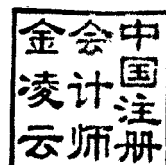 中国注册
会计师
金凌云